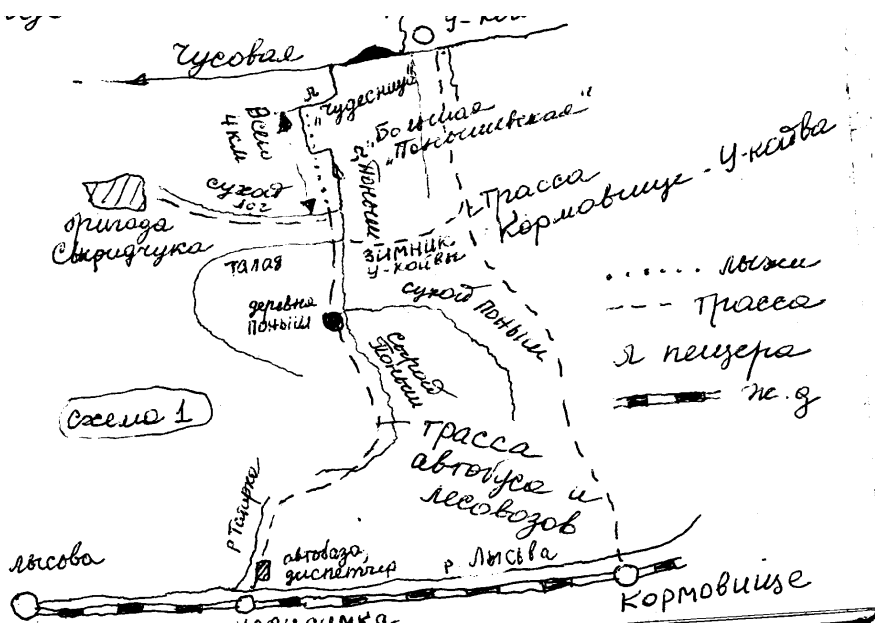 У-Кой
Чусовая
"Чудесница"
Всего
4 км
"Большая
"Понышевская"
р. Поныш
Сухой
лог
бригада
Свиридчука
трасса
Кормовище - У-койва
зимник
У-койвы
талая
сухой Поныш
деревня
Поныш
сырой
Поныш
лыжи
трасса
Я пещера
ж.д
схема 1
трасса
автобуса и
лесовозов
р Татарка
автобаза,
диспетчер
р. Лысьва
лысова
Кормовище